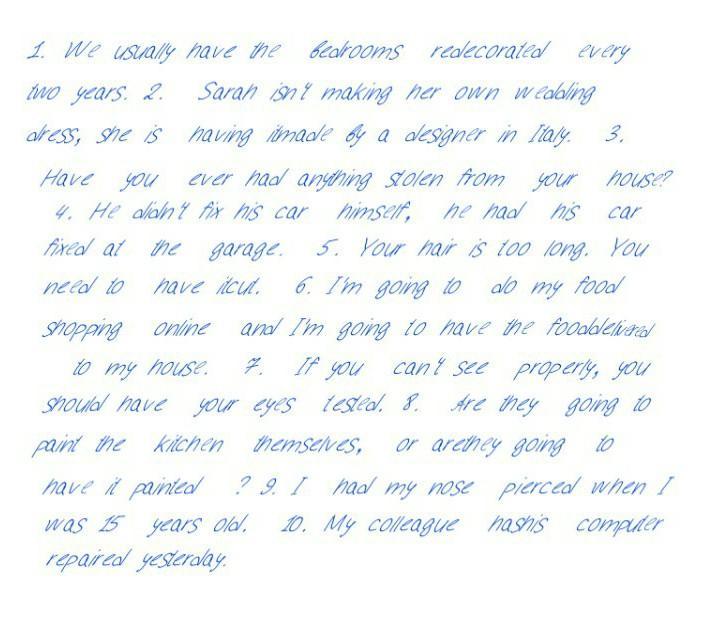 1. We usually have the bedrooms redecorated every
two years. 2. Sarah isn't making her own wedding
dress, she is having itmade by a designer in Italy. 3.
Have you ever had anything stolen from your house?
4. He didn't fix his car himself, he had his car
fixed at the garage. 5. Your hair is too long. You
need to have itcut. 6. I'm going to do my food
shopping online and I'm going to have the fooddelivered
to my house. 7. If you can't see properly, you
should have your eyes tested. 8. Are they going to
paint the kitchen themselves, or arethey going to
have it painted ? 9. I had my nose pierced when I
was 15 years old. 10. My colleague hashis computer
repaired yesterday.